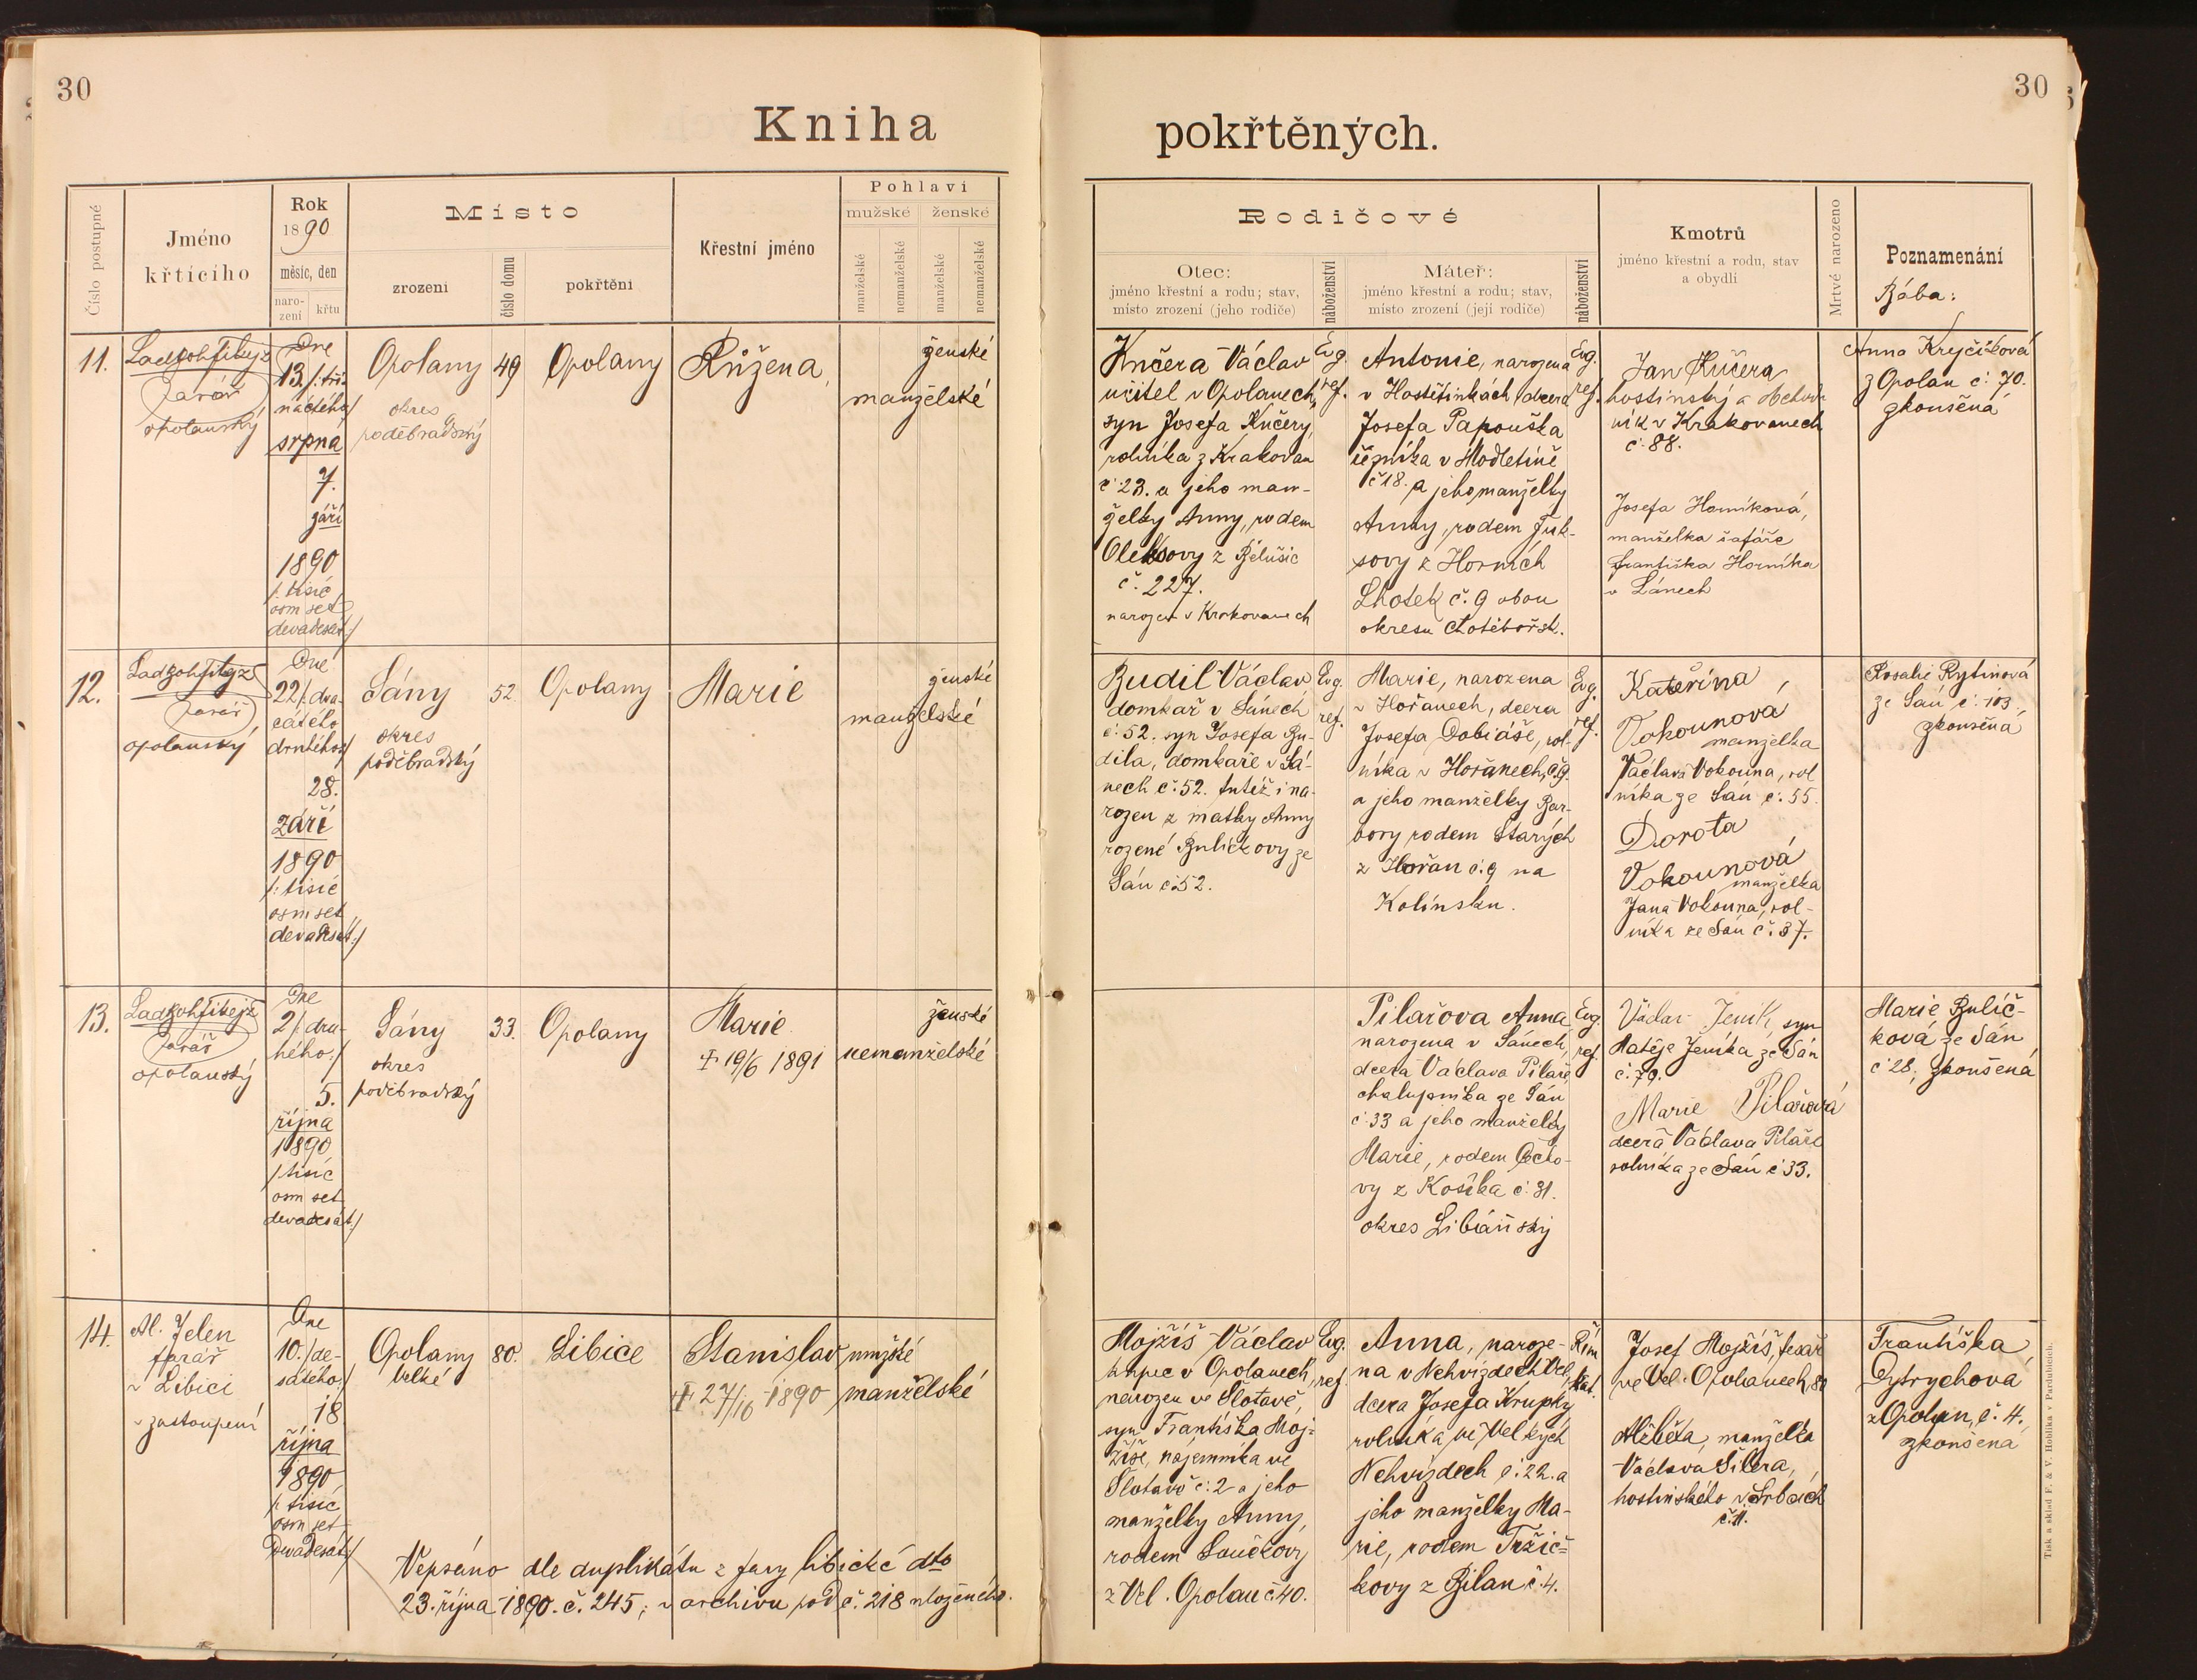 30
Kniha
Číslo postupné
Jméno
křtícího
Rok
1890
měsíc, den
naro-
zení
křtu
Místo
zrození
číslo domu
pokřtění
Křestní jméno
Pohlaví
mužské
ženské
manželské
nemanželské
manželské
nemanželské
11.
farář
opolanský
Dne
13. /: tři-
náctého:/
srpna
7.
září
1890
/: tisíc
osm set
devadesát:/
Opolany
okres
poděbradský
49
Opolany
Růžena,
ženské
manželské
12.
farář
opolanský
Dne
22 /: dva-
cátého
druhého:/
28.
září
1890
/: tisíc
osm set
devadesát:/
Sány
okres
poděbradský
52
Opolany
Marie
ženské
manželské
13.
farář
opolanský
Dne
2 /: dru-
hého:/
5.
října
1890
/: tisíc
osm set
devadesát:/
Sány
okres
poděbradský
33.
Opolany
Marie
† 19/6 1891
ženské
nemanželské
14.
Al. Jelen
farář
v Libici
v zastoupení
Dne
10. /: de-
sátého:/
18
října
1890
/: tisíc
osm set
devadesát:/
Opolany
velké
80.
Libice
Stanislav
† 27/10 1890
mužské
manželské
Vepsáno dle duplikátu z fary libické dto
23. října 1890. č. 245; v archivu pod č. 218 uloženého.
30
pokřtěných.
Rodičové
Otec:
jméno křestní a rodu; stav,
místo zrození (jeho rodiče)
náboženství
Máteř:
jméno křestní a rodu; stav,
místo zrození (její rodiče)
náboženství
Kmotrů
jméno křestní a rodu, stav
a obydlí
Mrtvé narozeno
Poznamenání
Bába:
Kučera Václav
učitel v Opolanech,
syn Josefa Kučery,
rolníka z Krakovan
č. 23. a jeho man-
želky Anny, rodem
Oleksovy z Bělušic
č. 227.
narozen v Krakovanech
Evg.
ref.
Antonie, narozena
v Hostětínkách, dcera
Josefa Papouška
řezníka v Modletíně
č. 18. a jeho manželky
Anny, rodem Fuk-
sovy z Horních
Lhotek č. 9 obou
okresu Chotěbořsk.
Evg.
ref.
Jan Kučera
hostinský a obchod-
ník v Krakovanech
č. 88.
Josefa Horníková,
manželka šafáře
Františka Horníka
v Sánech
Anna Krejčíková
z Opolan č. 70.
zkoušená
Budil Václav
domkař v Sánech
č. 52. syn Josefa Bu-
dila, domkaře v Sá-
nech č. 52. tutéž i na-
rozen z matky Anny
rozené Buličkovy ze
Sán č. 52.
Evg.
ref.
Marie, narozena
v Hořanech, dcera
Josefa Dobiáše, rol-
níka v Hořanech, č. 9.
a jeho manželky Bar-
bory rodem Starých
z Hořan č. 9 na
Kolínsku.
Evg.
ref.
Kateřina
Vokounová
manželka
Václava Vokouna, rol
níka ze Sán č. 55.
Dorota
Vokounová
manželka
Jana Vokouna, rol-
níka ze Sán č. 37.
Rosalie Rytinová
ze Sán č. 103.,
zkoušená
Pilařova Anna
narozena v Sánech,
dcera Václava Pilaře
chalupníka ze Sán
č. 33 a jeho manželky
Marie, rodem Očko-
vy z Košíka č. 31.
okres Libáňský
Evg.
ref.
Václav Jeník, syn
Matěje Jeníka ze Sán
č. 79.
Marie Pilařová
dcera Václava Pilaře
rolníka ze Sán č. 33.
Marie Bulíč-
ková ze Sán
č. 28, zkoušená
Mojžíš Václav
kupec v Opolanech,
narozen ve Slotavě,
syn Františka Moj-
žíše, nájemníka ve
Slotavě č. 2 a jeho
manželky Anny,
rodem Součkovy
z Vel. Opolan č. 40.
Evg.
ref.
Anna, naroze-
na v Nehvizdech Vel.,
dcera Josefa Krupky
rolníka ve Velkých
Nehvizdech č. 22. a
jeho manželky Ma-
rie, rodem Tržic-
kovy z Bilan č. 4.
Řím.
kat.
Josef Mojžíš, tesař
ve Vel. Opolanech, 80
Alžběta, manželka
Václava Šilera,
hostinského v Srbcích
č. 11.
Františka
Dytrychová
z Opolan, č. 4.
zkoušená
Tisk a sklad F. & V. Hoblíka v Pardubicích.